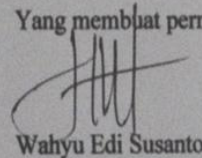 Yang membuat pern
Wahyu Edi Susanto